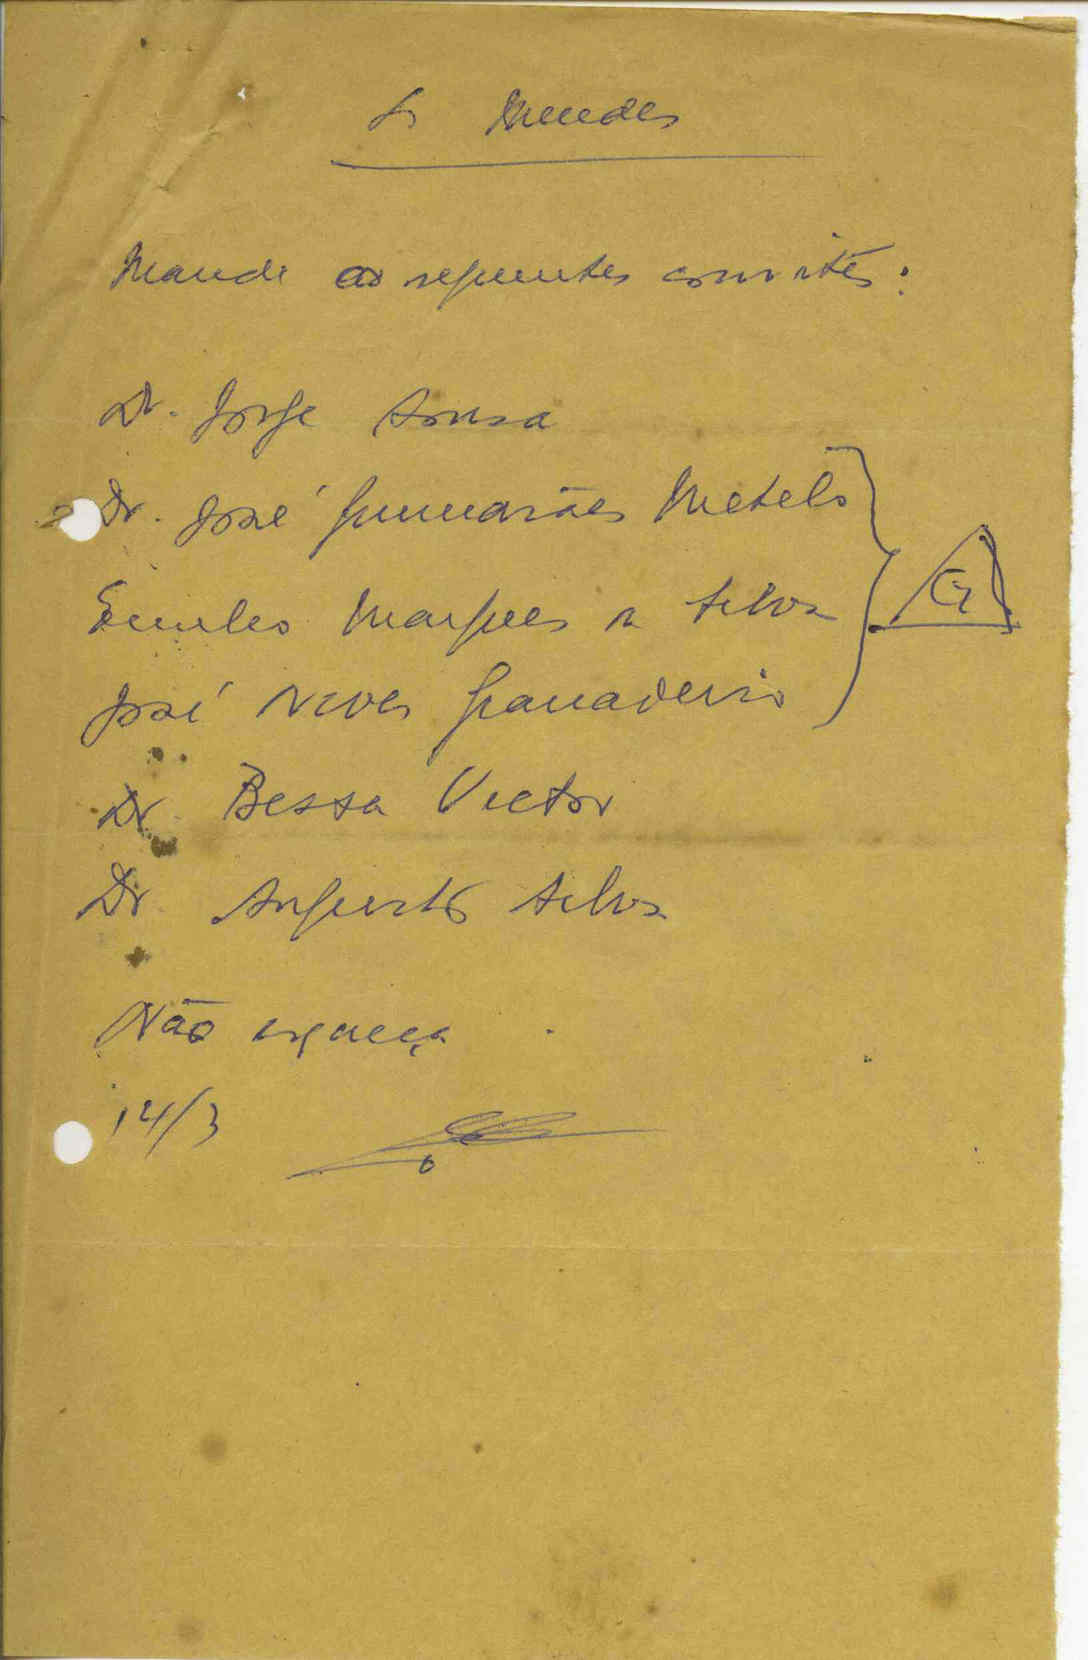 Sr Mendes
Mande os seguintes convites:
Dr. Jorge Sousa
Dr. José Guimarães Metelo
Emileo Marques e Silva
José Neves Granadeiro
Dr Bessa Victor
Dr Augusto Silva
Não esqueça
14/3